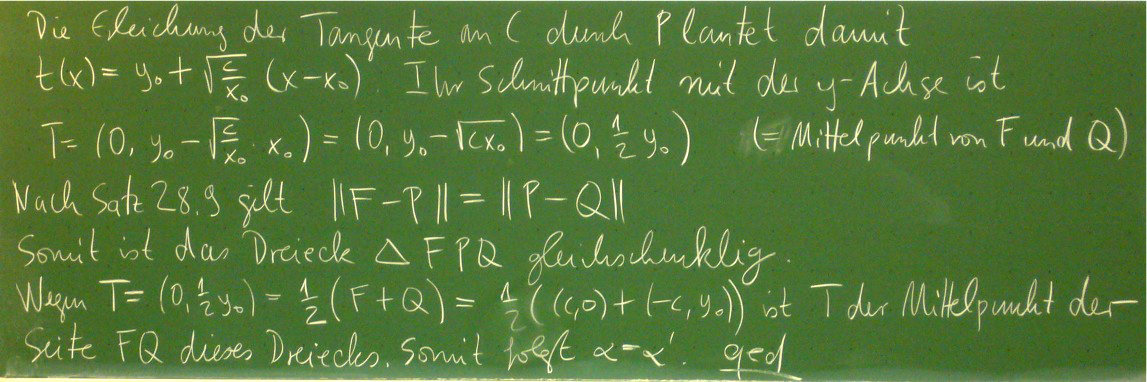 Die Gleichung der Tangente an C durch P lautet damit
t(x) = y₀ + √(c/x₀) (x-x₀). Ihr Schnittpunkt mit der y-Achse ist
T = (0, y₀ - √(c/x₀) · x₀) = (0, y₀ - √(cx₀)) = (0, 1/2 y₀) (= Mittelpunkt von F und Q)
Nach Satz 28.9 gilt ||F-P|| = ||P-Q||
Somit ist das Dreieck △ FPQ gleichschenklig.
Wegen T = (0, 1/2 y₀) = 1/2 (F+Q) = 1/2 ((c,0) + (-c, y₀)) ist T der Mittelpunkt der
Seite FQ dieses Dreiecks. Somit folgt α = α'. qed